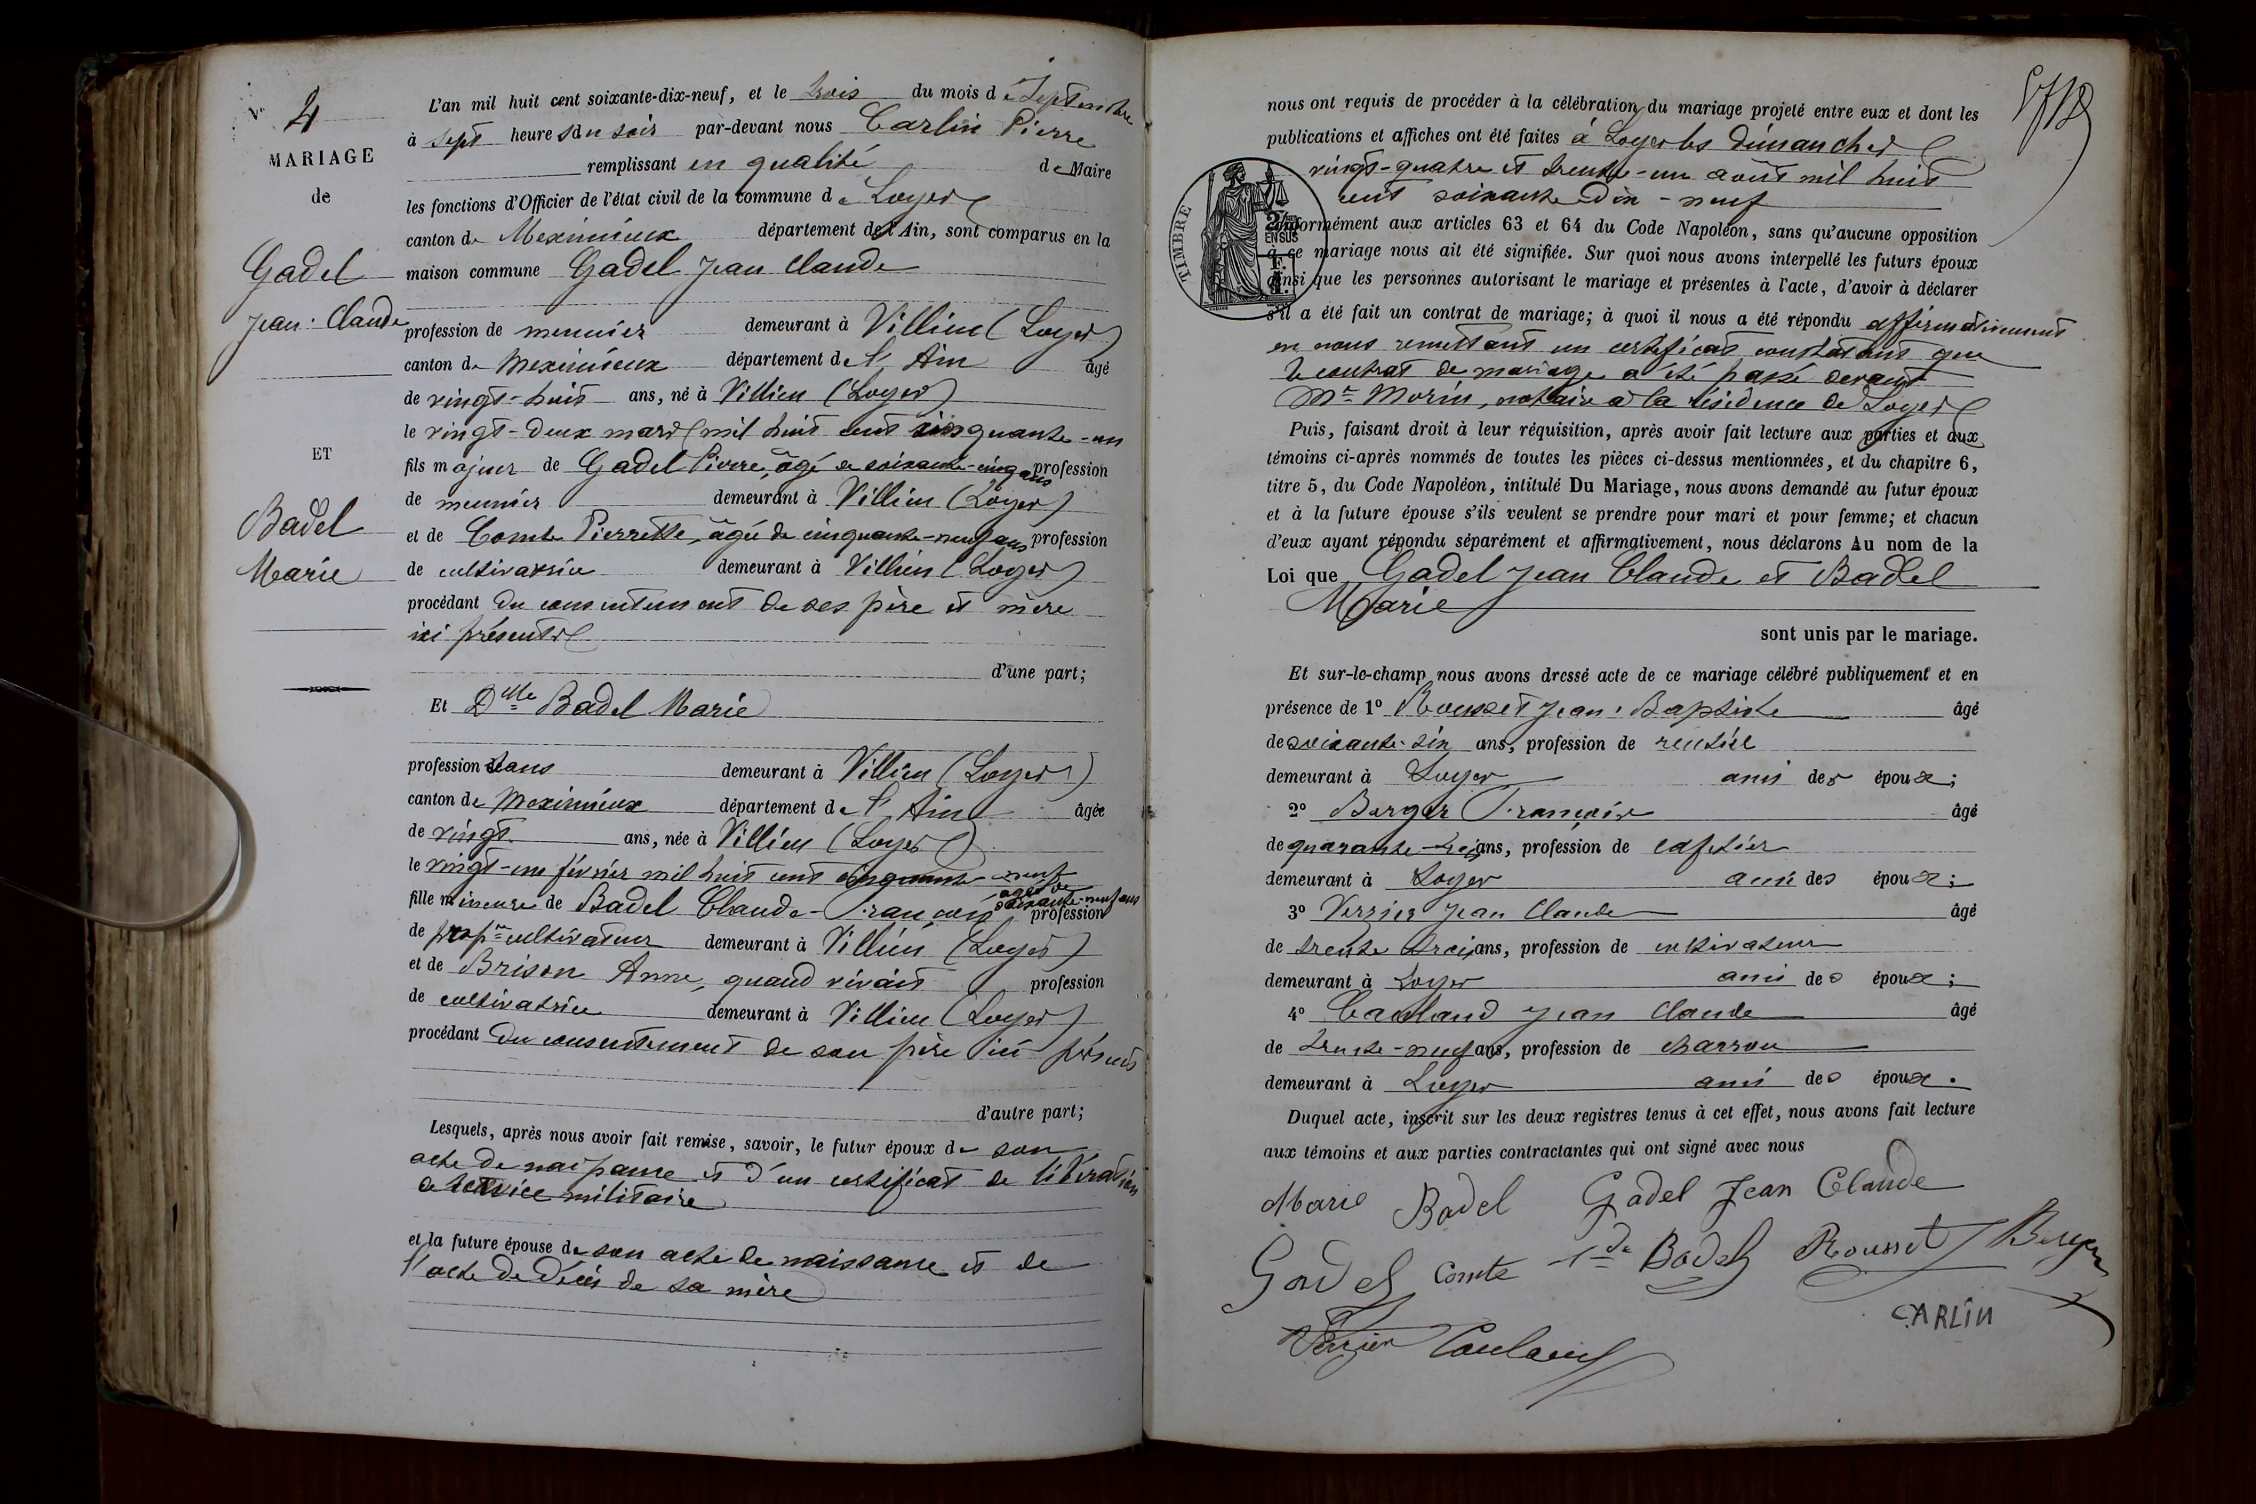 4
MARIAGE
de
Gadel
Jean-Claude
ET
Badel
Marie
L'an mil huit cent soixante-dix-neuf, et le trois du mois de Septembre
à sept heures du soir par-devant nous Carlin Pierre
remplissant en qualité de Maire
les fonctions d'Officier de l'état civil de la commune de Loyes
canton de Meximieux département de l'Ain, sont comparus en la
maison commune Gadel Jean Claude
profession de meunier demeurant à Villieu (Loyes)
canton de Meximieux département de l'Ain âgé
de vingt-huit ans, né à Villieu (Loyes)
le vingt-deux mars mil huit cent cinquante-un
fils majeur de Gadel Pierre, âgé de soixante-cinq ans profession
de meunier demeurant à Villieu (Loyes)
et de Comte Pierrette, âgée de cinquante-neuf ans profession
de cultivatrice demeurant à Villieu (Loyes)
procédant du consentement de ses père et mère
ici présents
d'une part;
Et Dlle Badel Marie
profession sans demeurant à Villieu (Loyes)
canton de Meximieux département de l'Ain âgée
de vingt ans, née à Villieu (Loyes)
le vingt-un février mil huit cent cinquante-neuf
fille mineure de Badel Claude-François âgé de soixante-neuf ans profession
de propre cultivateur demeurant à Villieu (Loyes)
et de Brison Anne, quand vivait profession
de cultivatrice demeurant à Villieu (Loyes)
procédant du consentement de son père ici présent
d'autre part;
Lesquels, après nous avoir fait remise, savoir, le futur époux de son
acte de naissance et d'un certificat de libération
de service militaire
et la future épouse de son acte de naissance et de
l'acte de décès de sa mère
nous ont requis de procéder à la célébration du mariage projeté entre eux et dont les
publications et affiches ont été faites à Loyes les dimanches
vingt-quatre et trente-un août mil huit
cent soixante-dix-neuf
TIMBRE
2/10mes
EN SUS
conformément aux articles 63 et 64 du Code Napoléon, sans qu'aucune opposition
à ce mariage nous ait été signifiée. Sur quoi nous avons interpellé les futurs époux
ainsi que les personnes autorisant le mariage et présentes à l'acte, d'avoir à déclarer
s'il a été fait un contrat de mariage; à quoi il nous a été répondu affirmativement
en nous remettant un certificat constatant que
le contrat de mariage a été passé devant
Me Morin, notaire à la résidence de Loyes
Puis, faisant droit à leur réquisition, après avoir fait lecture aux parties et aux
témoins ci-après nommés de toutes les pièces ci-dessus mentionnées, et du chapitre 6,
titre 5, du Code Napoléon, intitulé Du Mariage, nous avons demandé au futur époux
et à la future épouse s'ils veulent se prendre pour mari et pour femme; et chacun
d'eux ayant répondu séparément et affirmativement, nous déclarons Au nom de la
Loi que Gadel Jean Claude et Badel
Marie
sont unis par le mariage.
Et sur-le-champ nous avons dressé acte de ce mariage célébré publiquement et en
présence de 1º Rousset Jean-Baptiste âgé
de soixante-six ans, profession de rentier
demeurant à Loyes ami des époux;
2º Berger François âgé
de quarante-trois ans, profession de cafetier
demeurant à Loyes ami des époux;
3º Verzier Jean Claude âgé
de trente trois ans, profession de cultivateur
demeurant à Loyes ami des époux;
4º Jean Claude âgé
de trente-neuf ans, profession de charron
demeurant à Loyes ami des époux.
Duquel acte, inscrit sur les deux registres tenus à cet effet, nous avons fait lecture
aux témoins et aux parties contractantes qui ont signé avec nous
Marie Badel Gadel Jean Claude
Gadel Comte Badel Rousset Berger
CARLIN